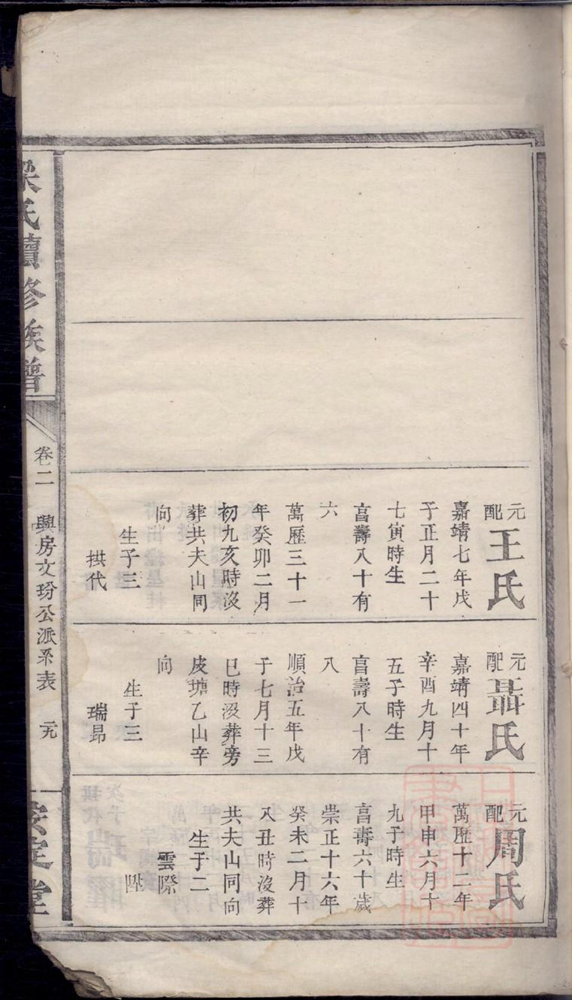 元配王氏
嘉靖七年戊
子正月二十
七寅時生
亯壽八十有
六
萬歷三十一
年癸卯二月
初九亥時沒
葬共夫山同
向
生子三
拱代
元配聶氏
嘉靖四十年
辛酉九月十
五子時生
亯壽八十有
八
順治五年戊
子七月十三
巳時沒葬旁
皮塘乙山辛
向
生子三
瑞昻
元配周氏
萬歷十二年
甲申六月十
九子時生
亯壽六十歲
崇正十六年
癸未二月十
八丑時沒葬
共夫山同向
生子二
雲際
陞
梁氏續修族譜
卷二
興房文玢公派系表
元
堂